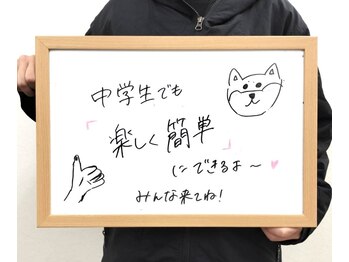 中学生でも
「楽しく簡単」
にできるよ～
みんな来てね!